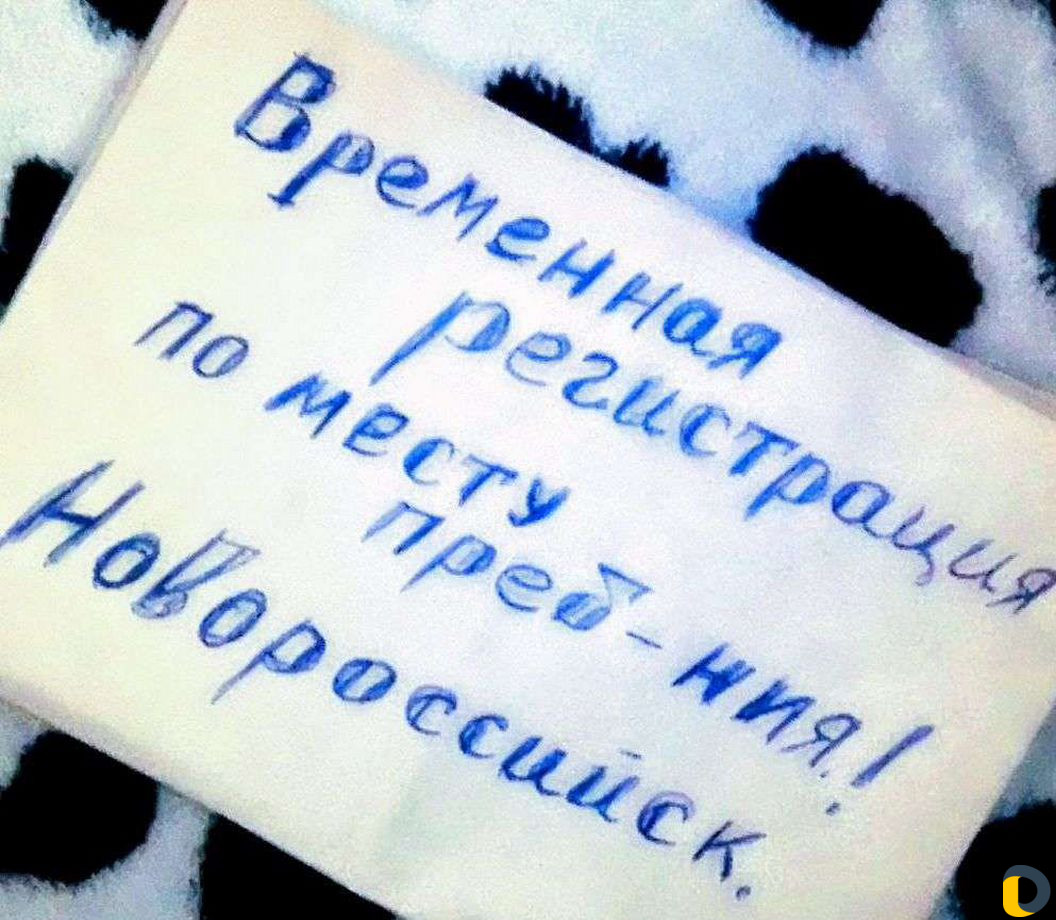 Временная
регистрация
по месту
преб-ния!
Новороссийск.